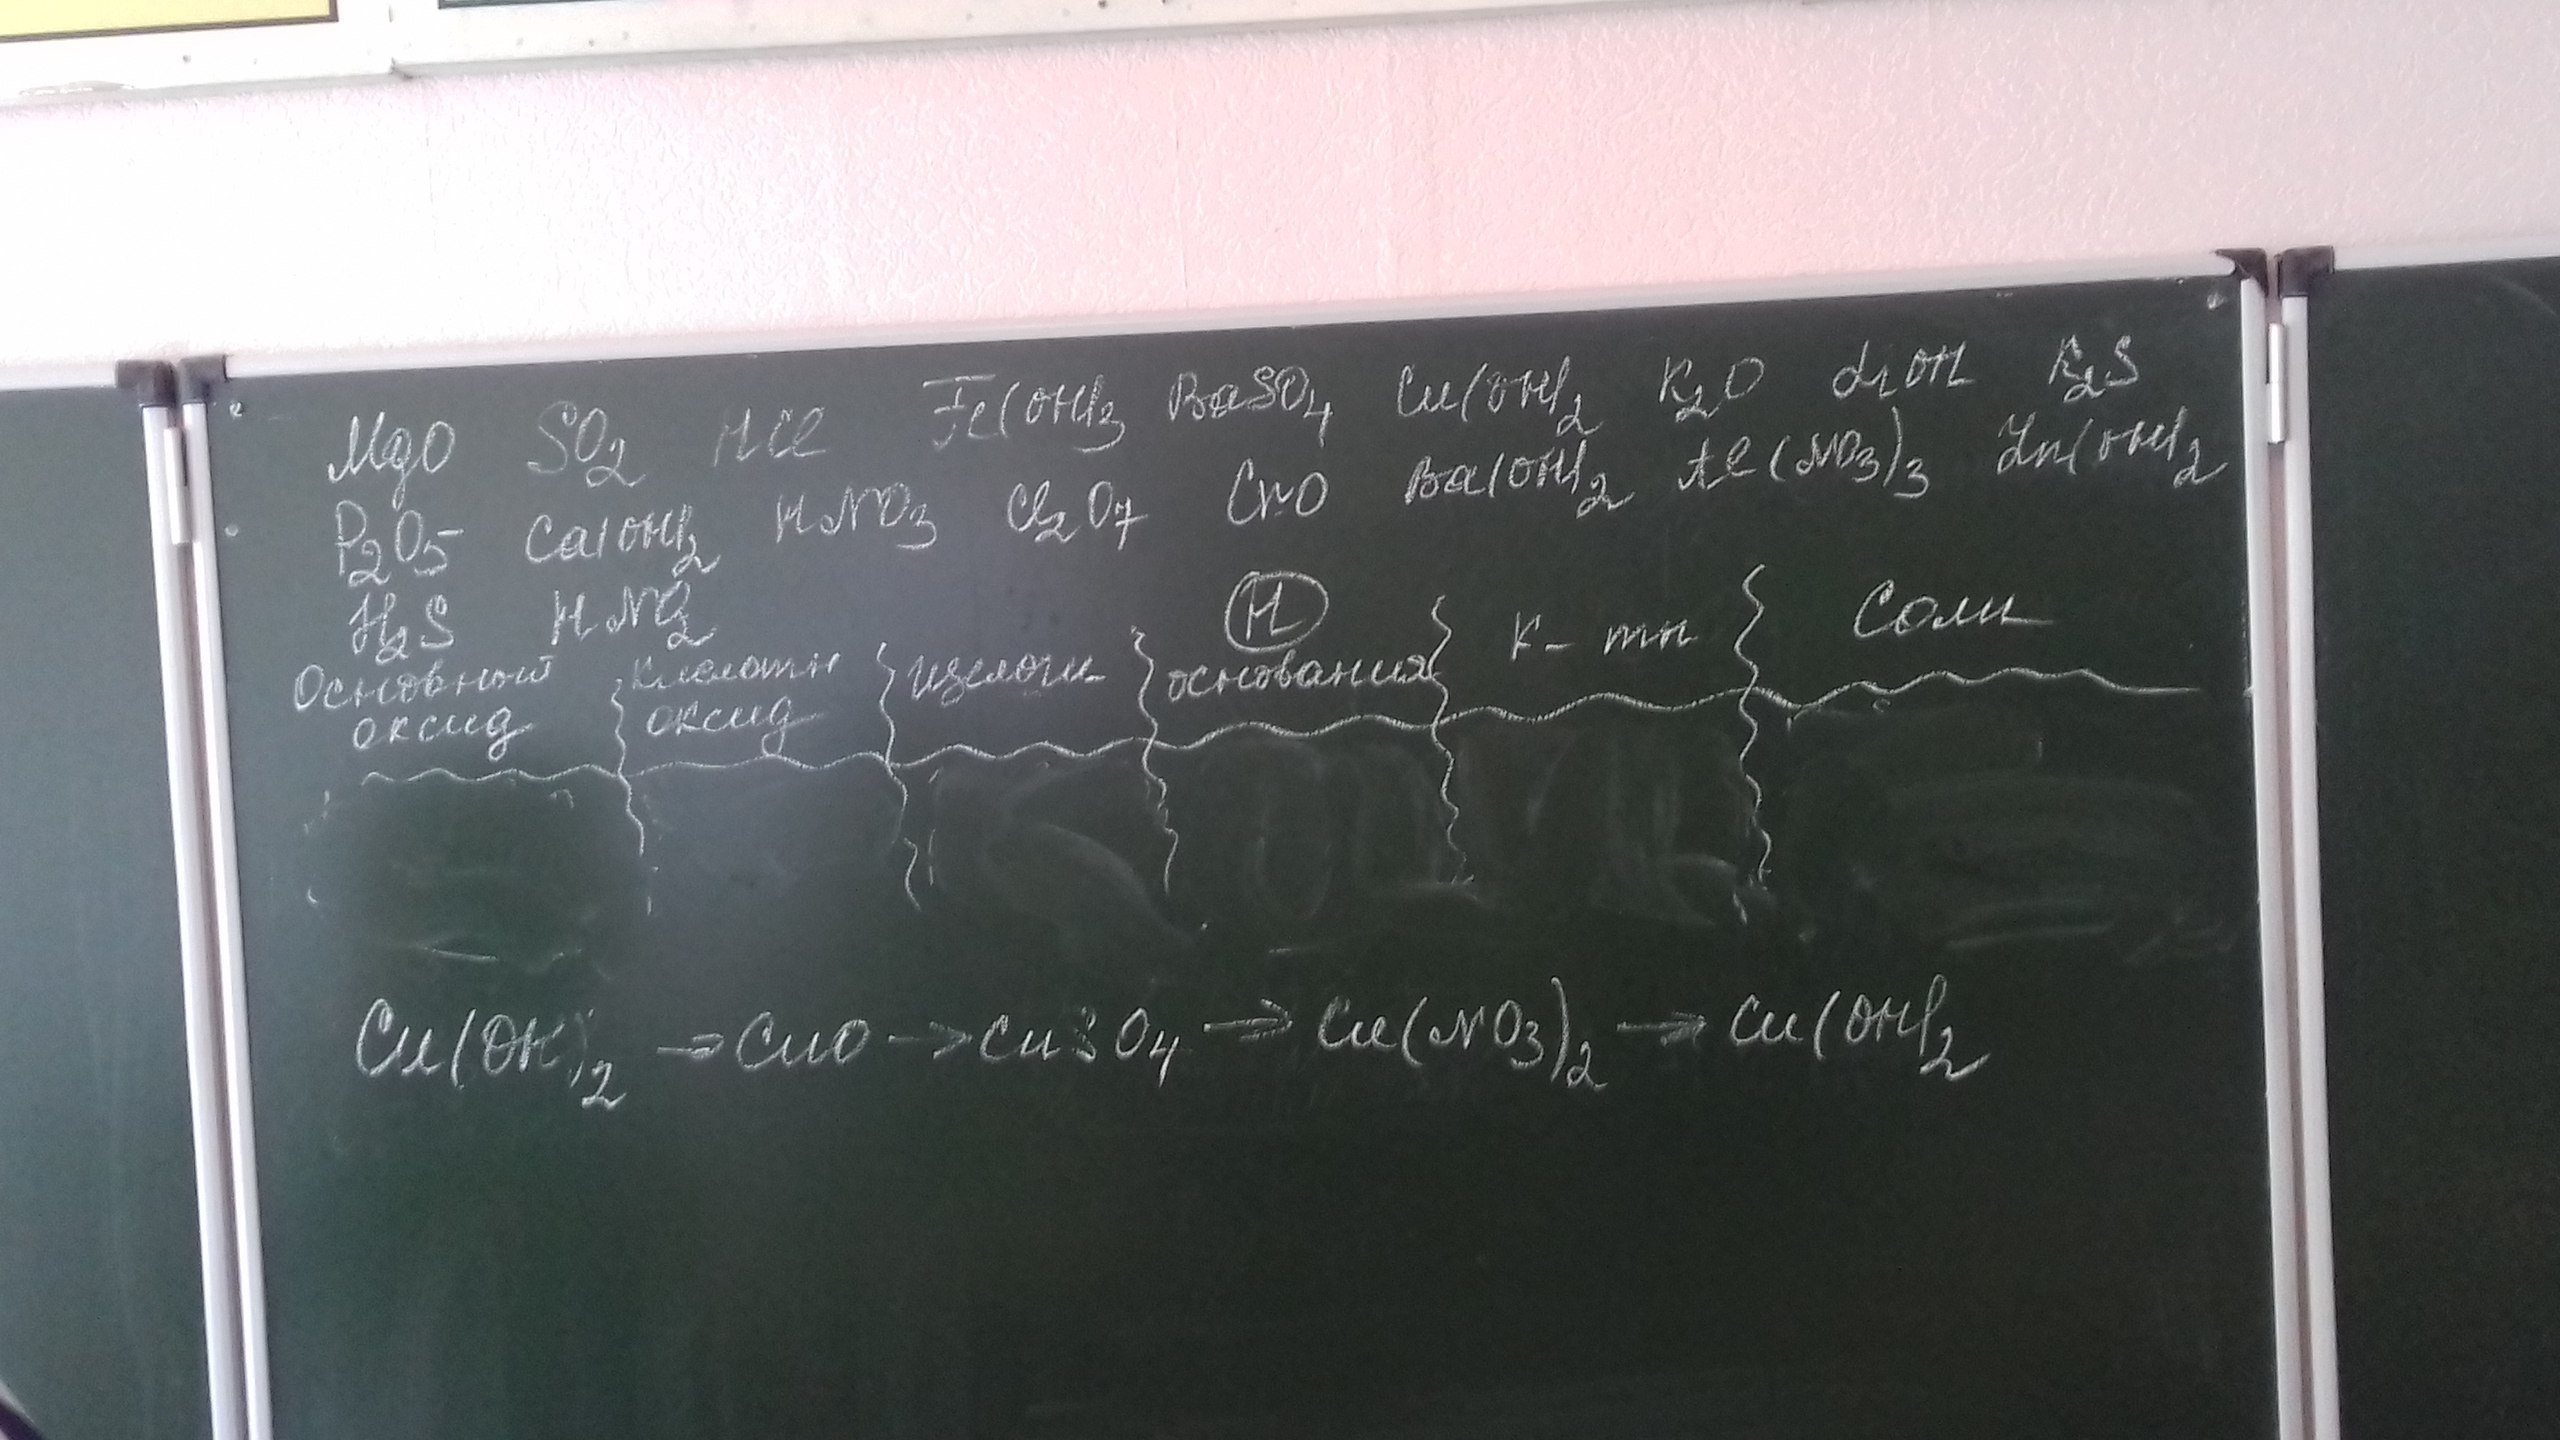 MgO SO2 HCl Fe(OH)3 BaSO4 Cu(OH)2 K2O LiOH K2S
P2O5 Ca(OH)2 HNO3 Cl2O7 CrO Ba(OH)2 Al(NO3)3 Zn(OH)2
H2S HNO2
Основный оксид
Кислотн оксид
щелочи
Н основания
К-ты
Соли
Cu(OH)2 → CuO → CuSO4 → Cu(NO3)2 → Cu(OH)2